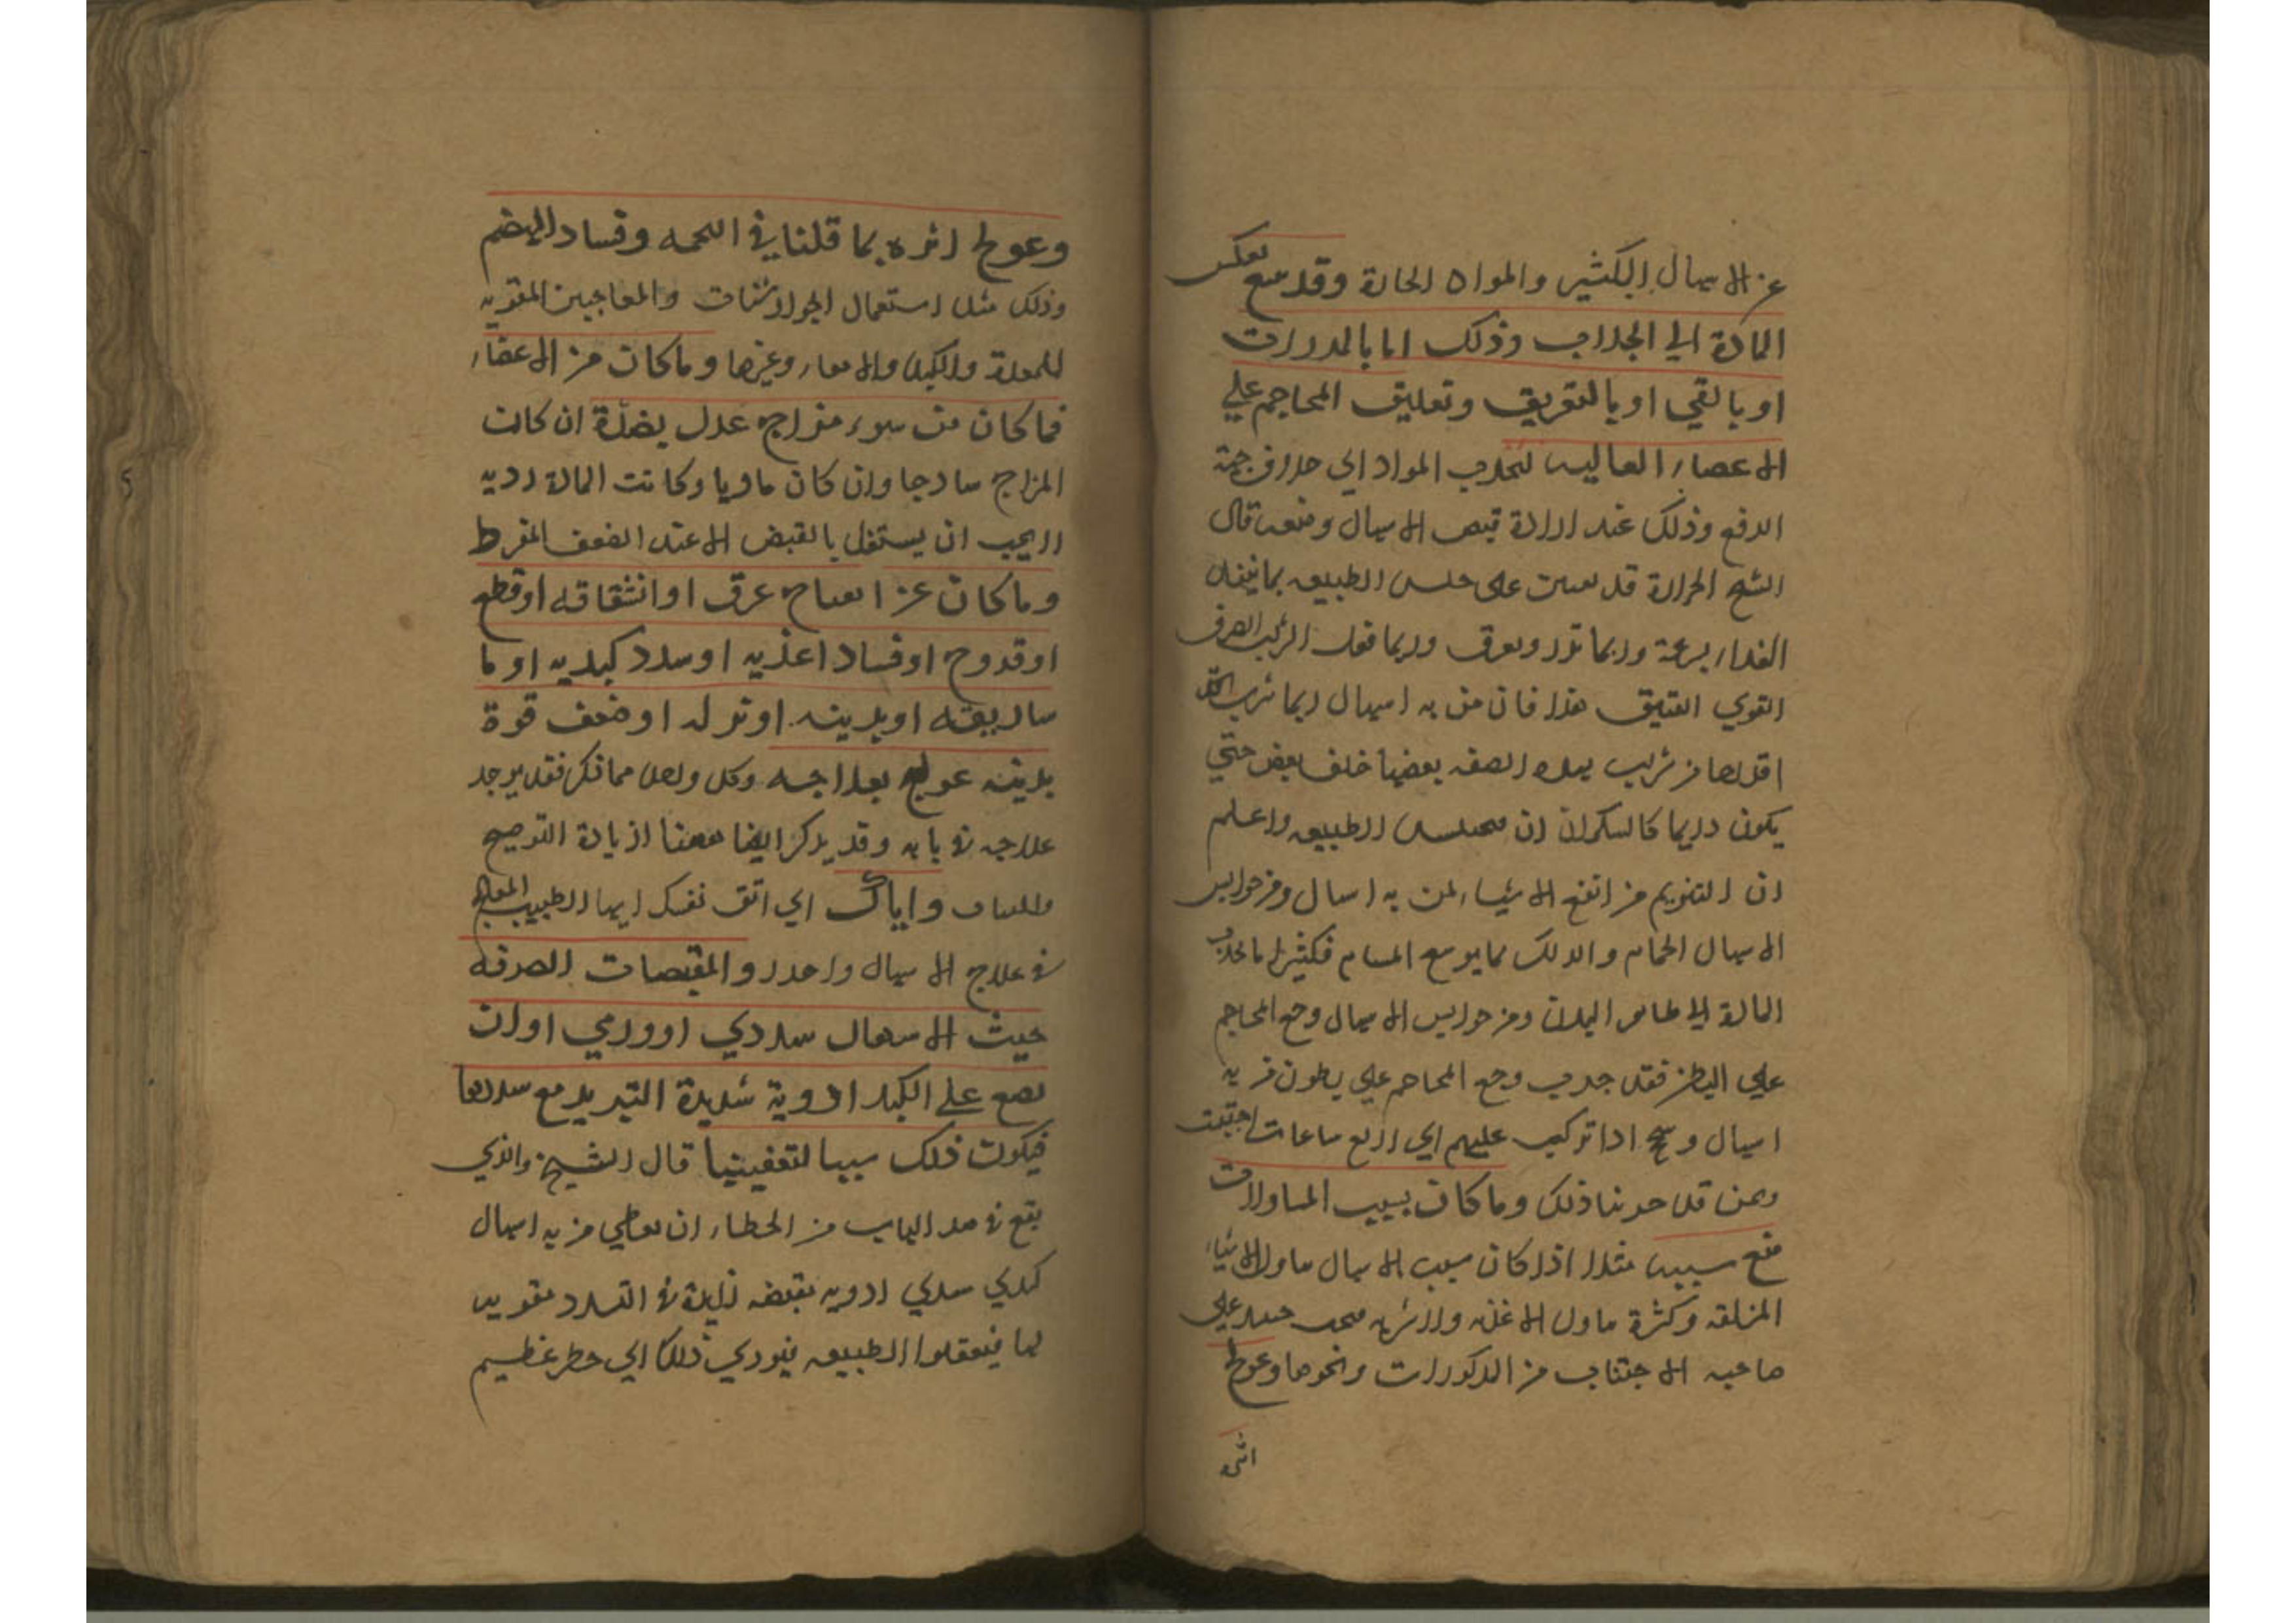 عن الاسهال الكثير والمواد الحادة وقد يمنع بعكس
المادة الي الجلاب وذلك اما بالمدررات
او بالقي او بالتعريق وتعليق المحاجم علي
الاعضاء العاليه لتجذب المواد الي خلاف جهة
الدفع وذلك عند ارادة قبض الاسهال ومنعه قال
الشيخ الحرارة قد تعين على حبس الطبيعه بما ينفذ
الغذاء بسرعة وربما تدر وتعرق وربما فعل الشراب الصرف
القوي العتيق هذا فان من به اسهال ربما شرب
اقداحا من شراب بهذه الصفه بعضها خلف بعض حتي
يكون دايما كالسكران ان الطبيعه واعلم
ان التنويم من انفع الاشياء لمن به اسهال ومن حوابس
الاسهال الحمام والدلك بما يوسع المسام فكثيرا ما يجذب
المادة الي ظاهر البدن ومن حوابس الاسهال وضع المحاجم
علي البطن فقد جرب وضع المحاجم علي بطون من به
اسهال وسحج اذا تركت عليهم الي اربع ساعات احتبست
وممن قد جربنا ذلك وما كان بسبب المتناولات
منع سببه مثلا اذا كان سبب الاسهال تناول الاشياء
المزلقه وكثرة تناول الاغذيه والاشربه فيجب حينئذ علي
صاحبه الاجتناب من المذكورات ونحوها وعولج
اثره
وعولج اثره بما قلنا في التخمه وفساد الهضم
وذلك مثل استعمال الجوارشنات والمعاجين المقويه
للمعدة والكبد والامعاء وغيرها وما كان من الاعضاء
فما كان من سوء مزاج عدل بضدة ان كان
المزاج ساذجا وان كان ماديا وكانت المادة رديه
لا يجب ان يستغل بالقبض الا عند الضعف المفرط
وما كان عن انفتاح عرق او انشقاقه او قطع
او قروح او فساد اغذيه او سدد كبديه او ما
ساريقيه او بدنيه او نزله او ضعف قوة
بدنيه عولج بعلاجه وكل واحد مما ذكر فقد يوجد
علاجه في بابه وقد يذكر ايضا ههنا لزيادة التوضيح
والبيان واياك اي اتق نفسك ايها الطبيب المعالج
في علاج الاسهال واحذر والمقبضات الصرفه
حيث الاسهال سددي او ورمي او ان
تضع علي الكبد ادوية شديدة التبريد مع سددها
فيكون ذلك سببا لتعفينها قال الشيخ والذي
يقع في هذا الباب من الخطاء ان يعطي من به اسهال
كبدي سددي ادويه مقبضه زايدة في التسدد مقويه
لها فيعقلوا الطبيعه فيودي ذلك الي خطر عظيم